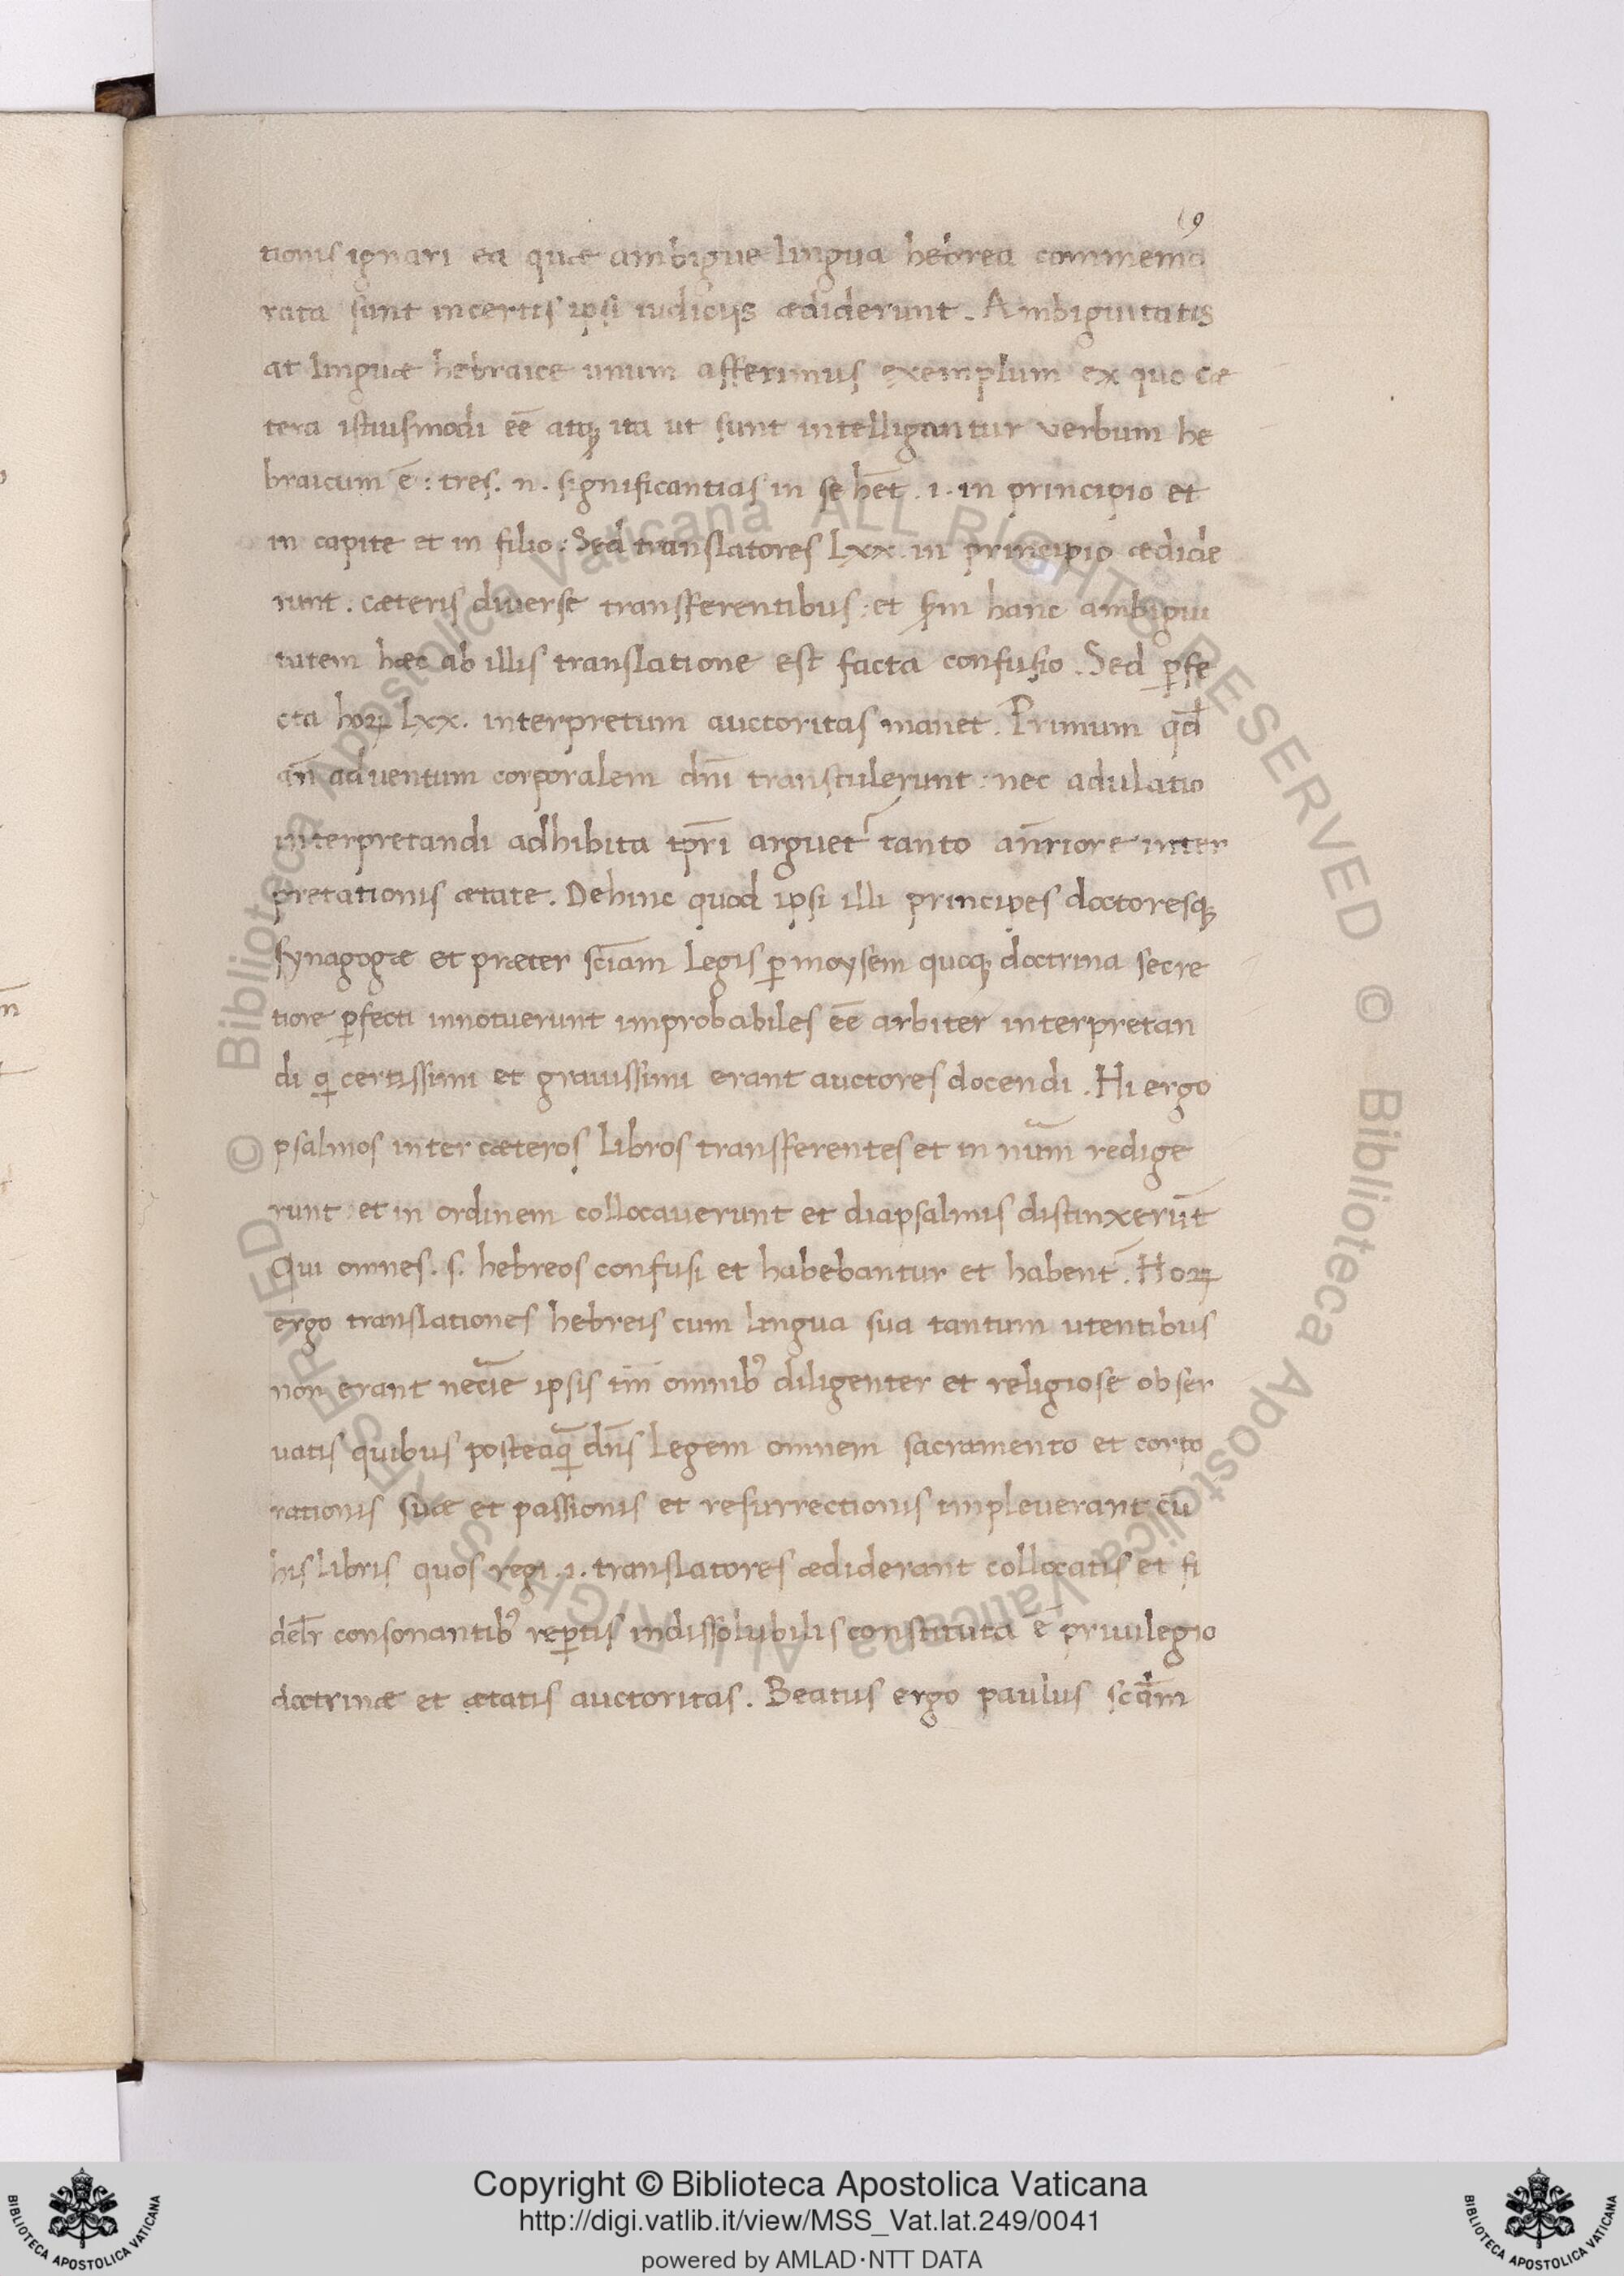 19
tionis ignari ea quæ ambigue lingua hebrea commemo
rata sunt incertis ipsi iudiciis ædiderunt. Ambiguitatis
at linguæ hebraice unum afferimus exemplum ex quo cæ
tera istiusmodi eē atq; ita ut sunt intelligantur verbum he
braicum ē: tres. n. significantias in se hēt. i. in principio et
in capite et in filio: Sed translatores Lxx. in principio ædide
runt. cæteris diuerse transferentibus: et scđm hanc ambigui
tatem hæc ab illis translatione est facta confusio. Sed ꝑfe
cta hoꝝ Lxx. interpretum auctoritas manet. Primum qđ
an̄ aduentum corporalem dnī transtulerunt: nec adulatio
interpretandi adhibita tp̄ri arguet᷑ tanto an̄riore inter
pretationis ætate. Dehinc quod ipsi illi principes doctoresq;
synagogæ et præter sciām Legis ꝑ moysem quoq; doctrina secre
tiore ꝑfecti innotuerunt improbabiles eē arbiter interpretan
di q̄ certissimi et grauissimi erant auctores docendi. Hi ergo
psalmos inter cæteros Libros transfferentes et in num̄ redige
runt: et in ordinem collocauerunt et diapsalmis distinxerūt
Qui omnes. s. hebreos confusi et habebantur et habent᷑. Hoꝝ
ergo translationes hebreis cum lingua sua tantum utentibus
non erant necīe ipsis tm̄ omnibꝰ diligenter et religiose obser
uatis quibus posteaq̄ dn̄s Legem omnem sacramento et corpo
rationis suæ et passionis et resurrectionis impleuerant cū
his libris quos regi. i. translatores ædiderant collocatis et fi
delr̄ consonantibꝰ reꝑtis indissolubilis constituta ē priuilegio
doctrinæ et ætatis auctoritas. Beatus ergo paulus scđm
Copyright © Biblioteca Apostolica Vaticana
http://digi.vatlib.it/view/MSS_Vat.lat.249/0041
powered by AMLAD·NTT DATA
BIBLIOTECA APOSTOLICA VATICANA
BIBLIOTECA APOSTOLICA VATICANA
© Biblioteca Apostolica Vaticana ALL RIGHTS RESERVED © Biblioteca Apostolica Vaticana ALL RIGHTS RESERVED